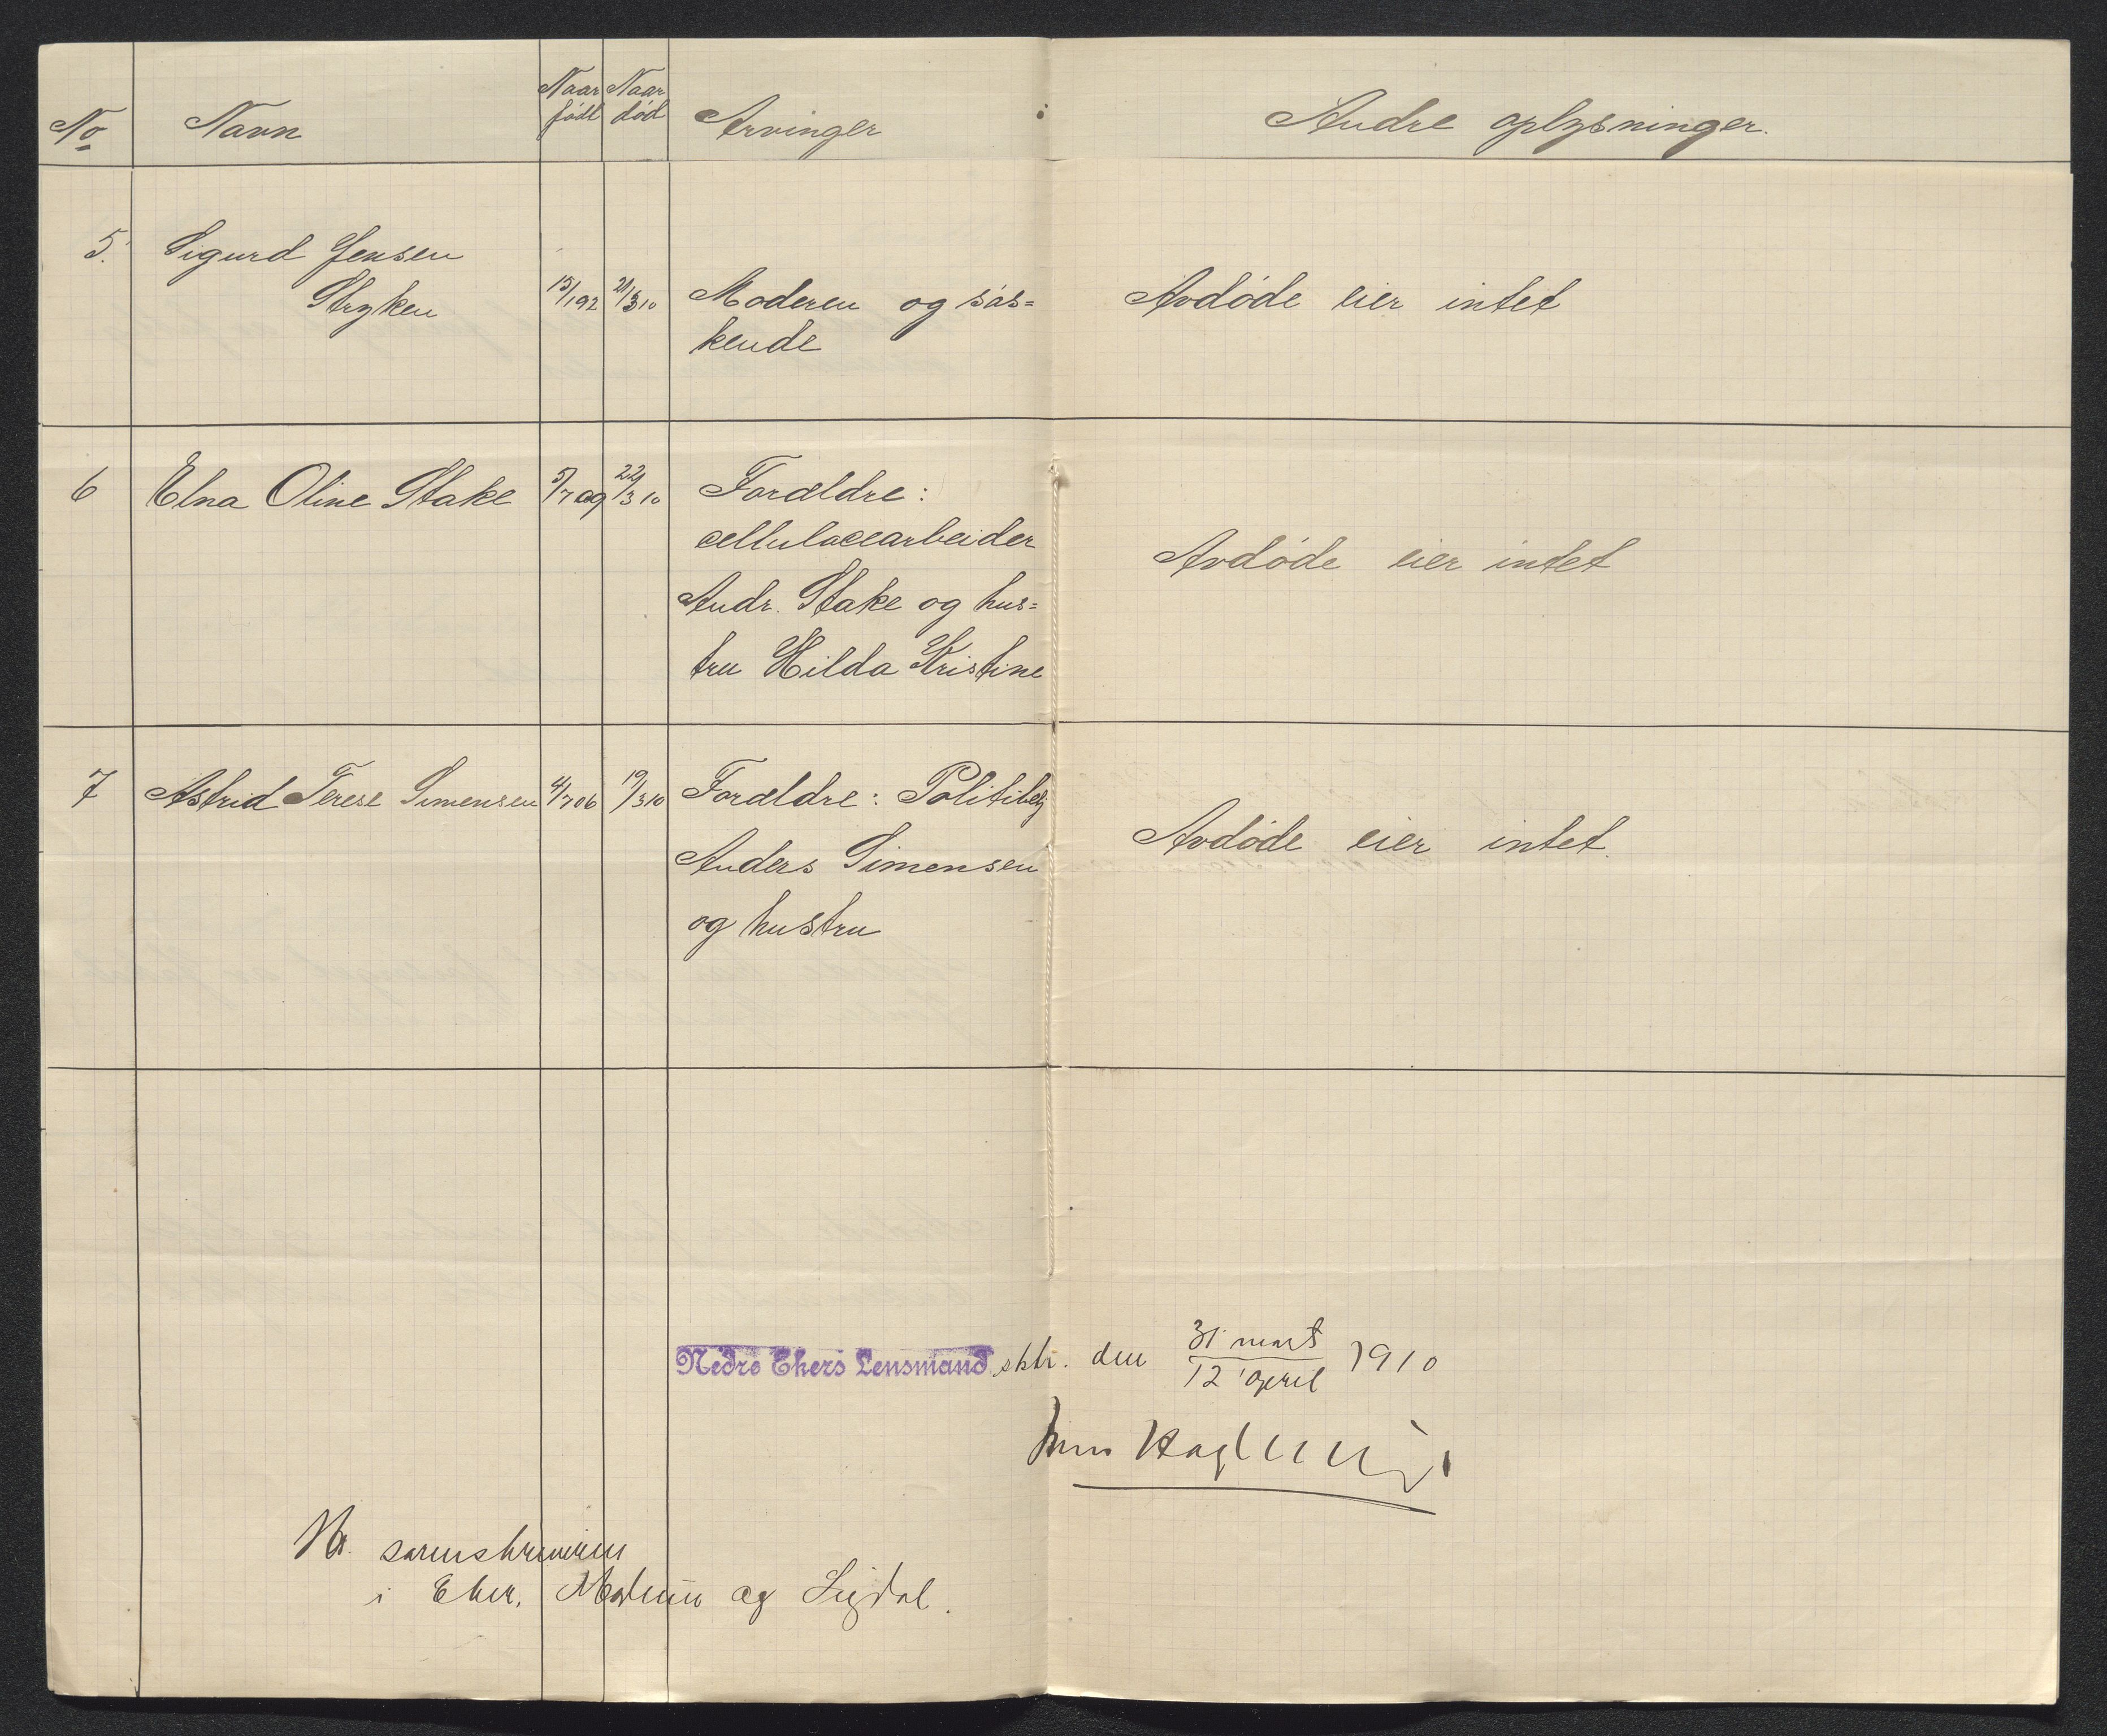 No Navn Naar født Naar død Arvinger Andre oplysninger.
5. Sigurd Jensen
Stryken 15/1 92 21/3 10 Moderen og søs= Avdøde eier intet
kende
6 Elna Oline Stake 5/7 09 22/3 10 Forældre:
cellulocearbeider
Avdøde eier intet
Andr. Stake og hus=
tru Hilda Kristine
7 Astrid Terese Simensen 4/7 06 19/3 10 Forældre: Politibetj
Avdøde eier intet.
Anders Simensen
og hustru
Nedre Ekers Lensmand sktr. den 31 mart / 12 april 1910
Hr. sorenskriveren
i Eker, Modum og Sigdal.